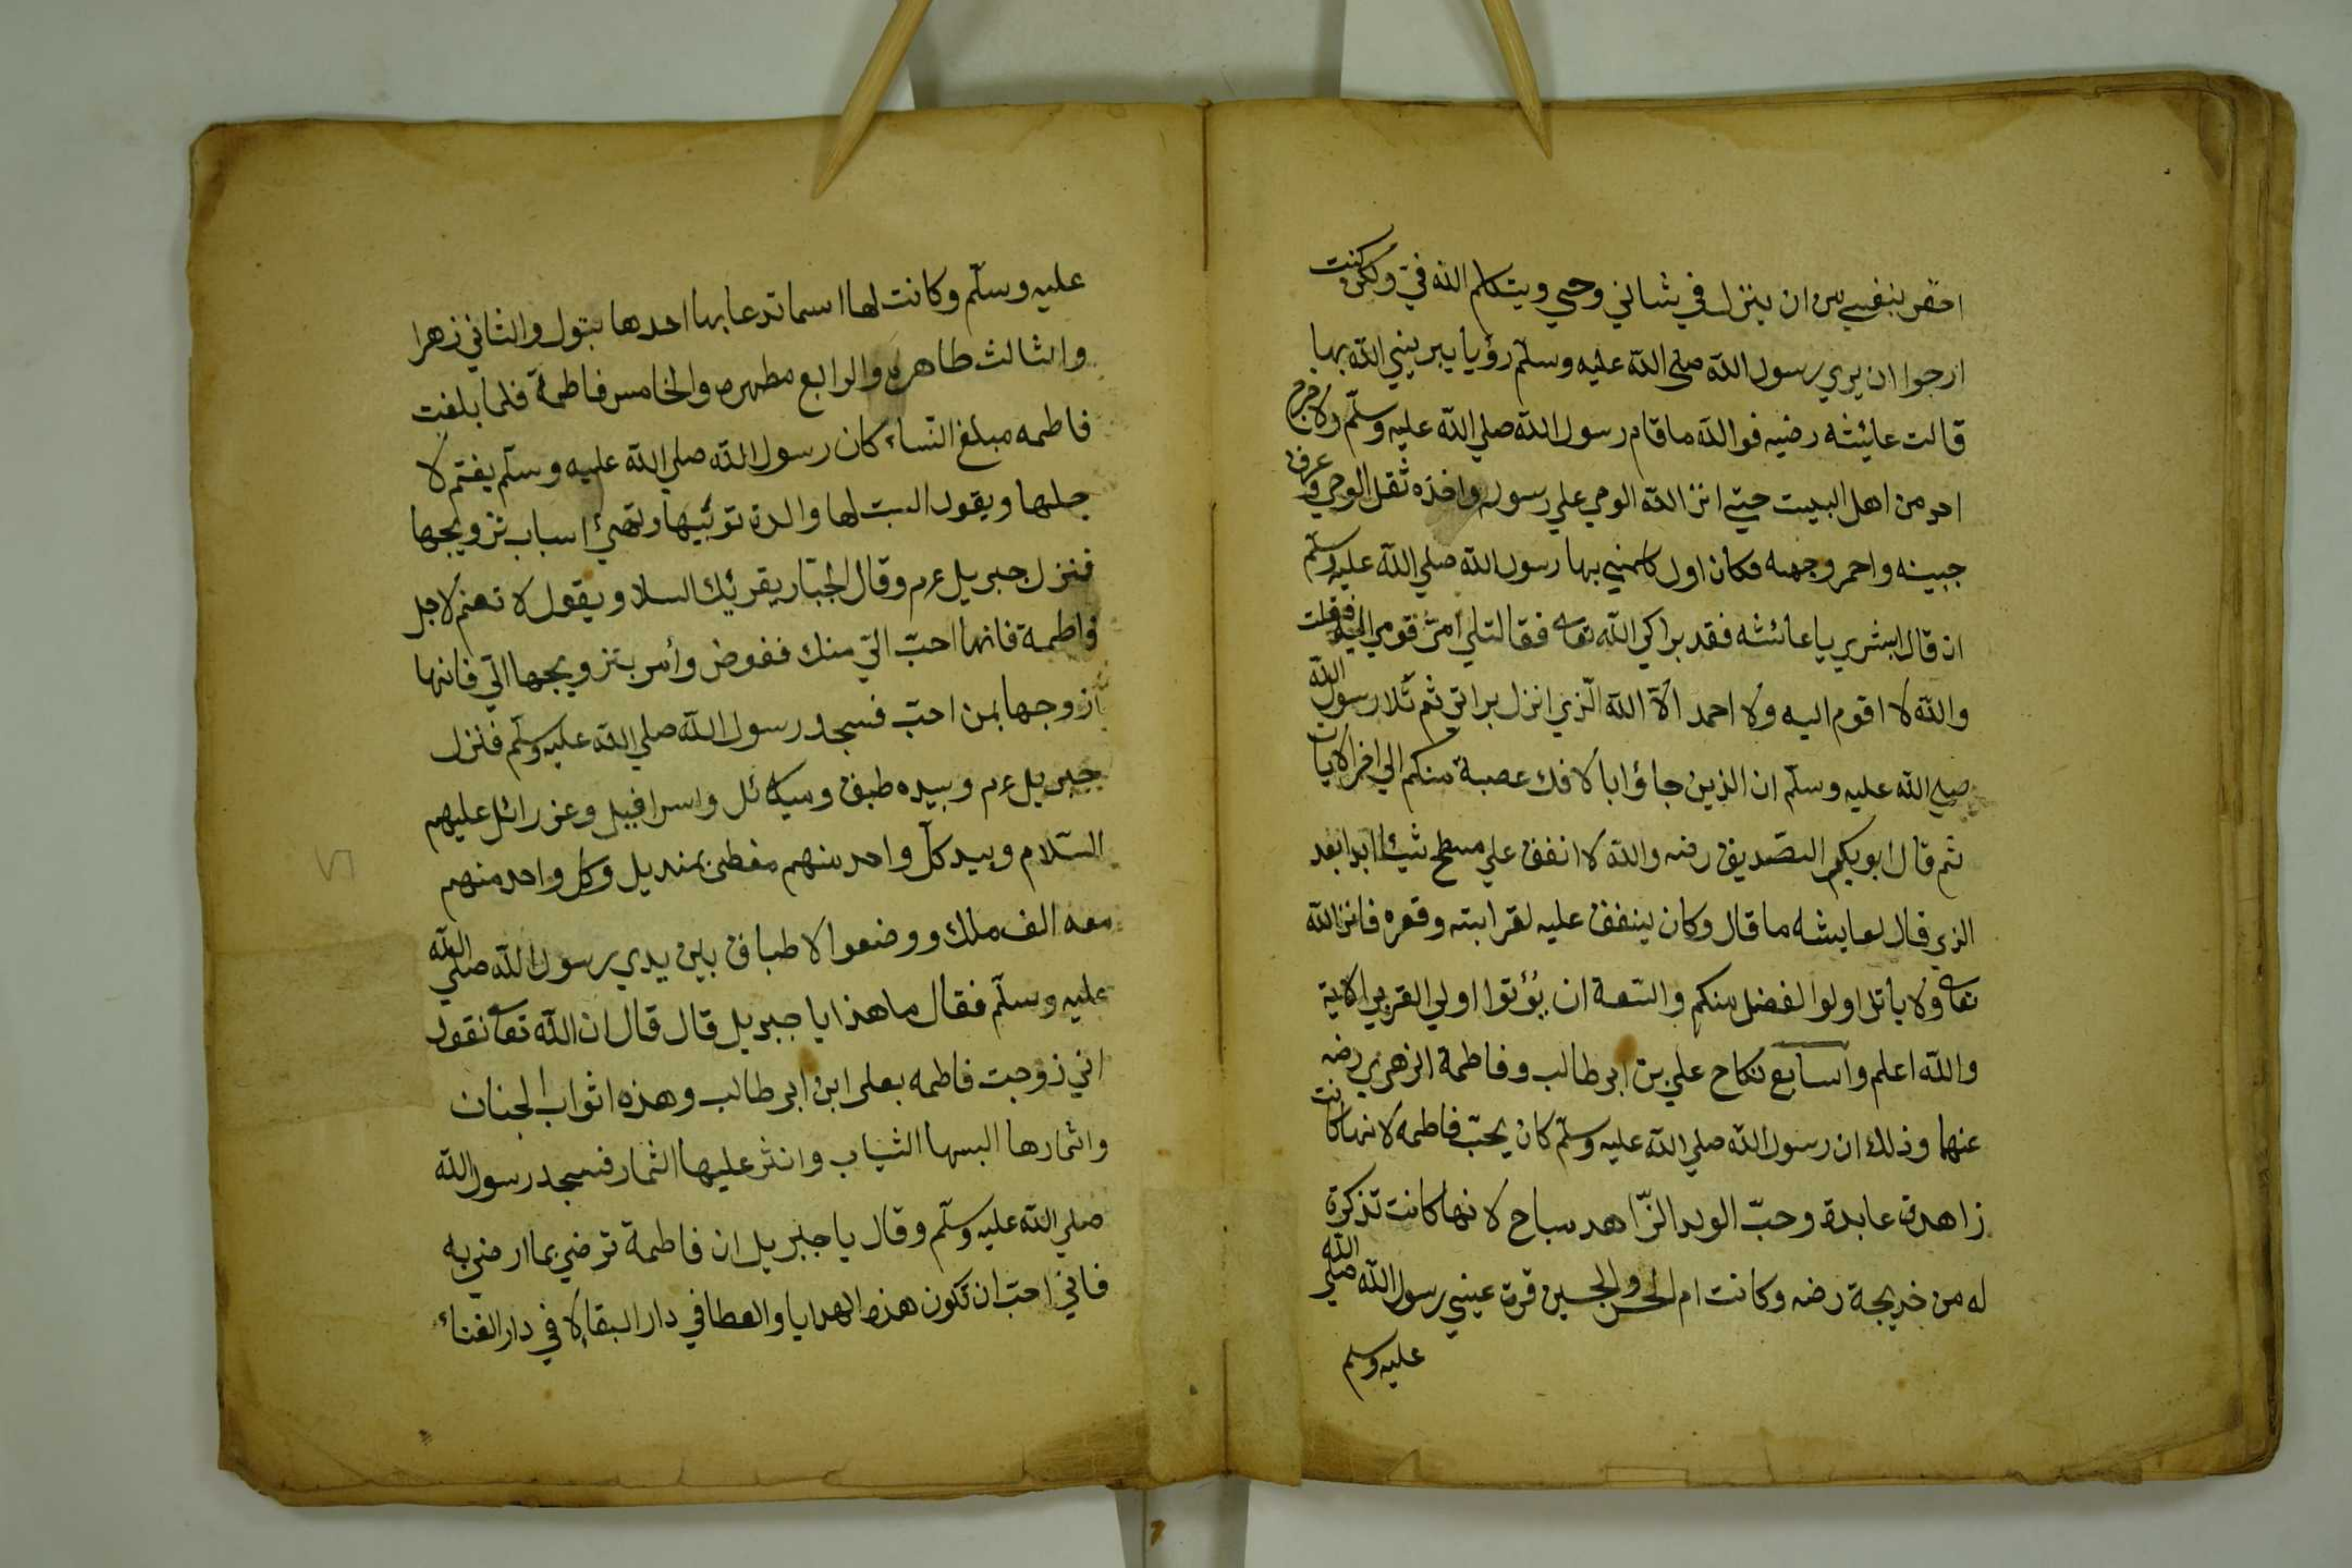 احقر بنفسي من ان ينزل في شاني وحي ويتكلم الله فيّ ولكن كنت
ارجوا ان يري رسول الله صلي الله عليه وسلّم رؤيا يبريني الله بها
قالت عايئشه رضيه فوالله ماقام رسول الله صلي الله عليه وسلّم ولا خرج
احد من اهل البيت حتي انز الله الومي علي رسوله واخذه ثقل الوحي وعرف
جبينه واحمر وجهه فكان اول كلمني بها رسول الله صلي الله عليه وسلّم
ان قال ابشري يا عائشه فقد براكي الله تعا فقالتلي امّي قومي اليه فقلت
والله لا اقوم اليه ولا احمد الّا الله الّذي انزل براتي ثم تلا رسول الله
صلي الله عليه وسلّم ان الذين جاؤا بالافك عصبة منكم الي اخر الايات
ثم قال ابو بكر الصّديق رضه والله لا انفق علي مسطح شيئا ابدا بعد
الذي قال لعايشه ما قال وكان ينفق عليه لقرابته وفقره فانز الله
تعا ولا ياتل اولوا الفضل منكم والسّعة ان يؤتوا اولي القربي الاية
والله اعلم وآسابع نكاح علي بن ابي طالب وفاطمة الزهري رضه
عنهما وذلك ان رسول الله صلي الله عليه وسلّم كان يحبّ فاطمه لانها كانت
زاهدة عابدة وحبّ الولد الزّاهد مباح لانها كانت تذكرة
له من خديجة رضه وكانت ام الحسن والحسين قرة عيني رسول الله صلي الله
عليه وسلم
عليه وسلّم وكانت لها اسما تدعا بها احدها بتول والثاني زهرا
والثالث طاهره والرابع مطهره والخامس فاطمة فلما بلغت
فاطمه مبلغ النّساء كان رسول الله صلي الله عليه وسلّم يغتم لا
جلها ويقول ليست لها والدة توئيها وتهئ اسباب تزويجها
فنزل جبريل عم وقال الجبّار يقرئك السلا ويقول لا تهتم لاجل
فاطمة فانها احبّ اليّ منك ففوض وأمر بتزويجها اليّ فانها
ازوجها بمن احبّ فسجد رسول الله صلي الله عليه وسلّم فنزل
جبريل عم وبيده طبق وميكائل واسرافيل وعزرائل عليهم
السّلام وبيد كلّ واحد منهم مغطئ بمنديل وكل واحد منهم
معه الف ملك ووضعوا الاطباق بين يدي رسول الله صلي الله
عليه وسلّم فقال ما هذا يا جبريل قال قال ان الله تعا نقول
اني زوجت فاطمه بعلي ابن ابي طالب وهذه اثواب الجنان
واثمارها البسها الثياب وانثر عليها الثمار فسجد رسول الله
صلي الله عليه وسلّم وقال يا جبريل ان فاطمة ترضي بما ارضي به
فاني احبّ ان تكون هذه الهدايا والعطا في دار البقا لا في دار الفناء